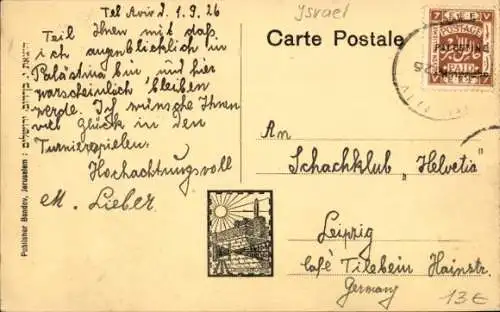 Tel Aviv d. 1.9.26
Teil Ihnen mit daß
ich augenblicklich in
Palästina bin und hier
warscheinlich bleiben
werde. Ich wünsche Ihnen
viel Glück in den
Turnierspielen.
Hochachtungsvoll
M. Lieber
Publisher Bendov, Jerusalem
Ysrael
Carte Postale
POSTAGE
PALESTINE
PAID
An
Schachklub „Helvetia"
Leipzig
Café Tilebein Hainstr.
Germany
13€